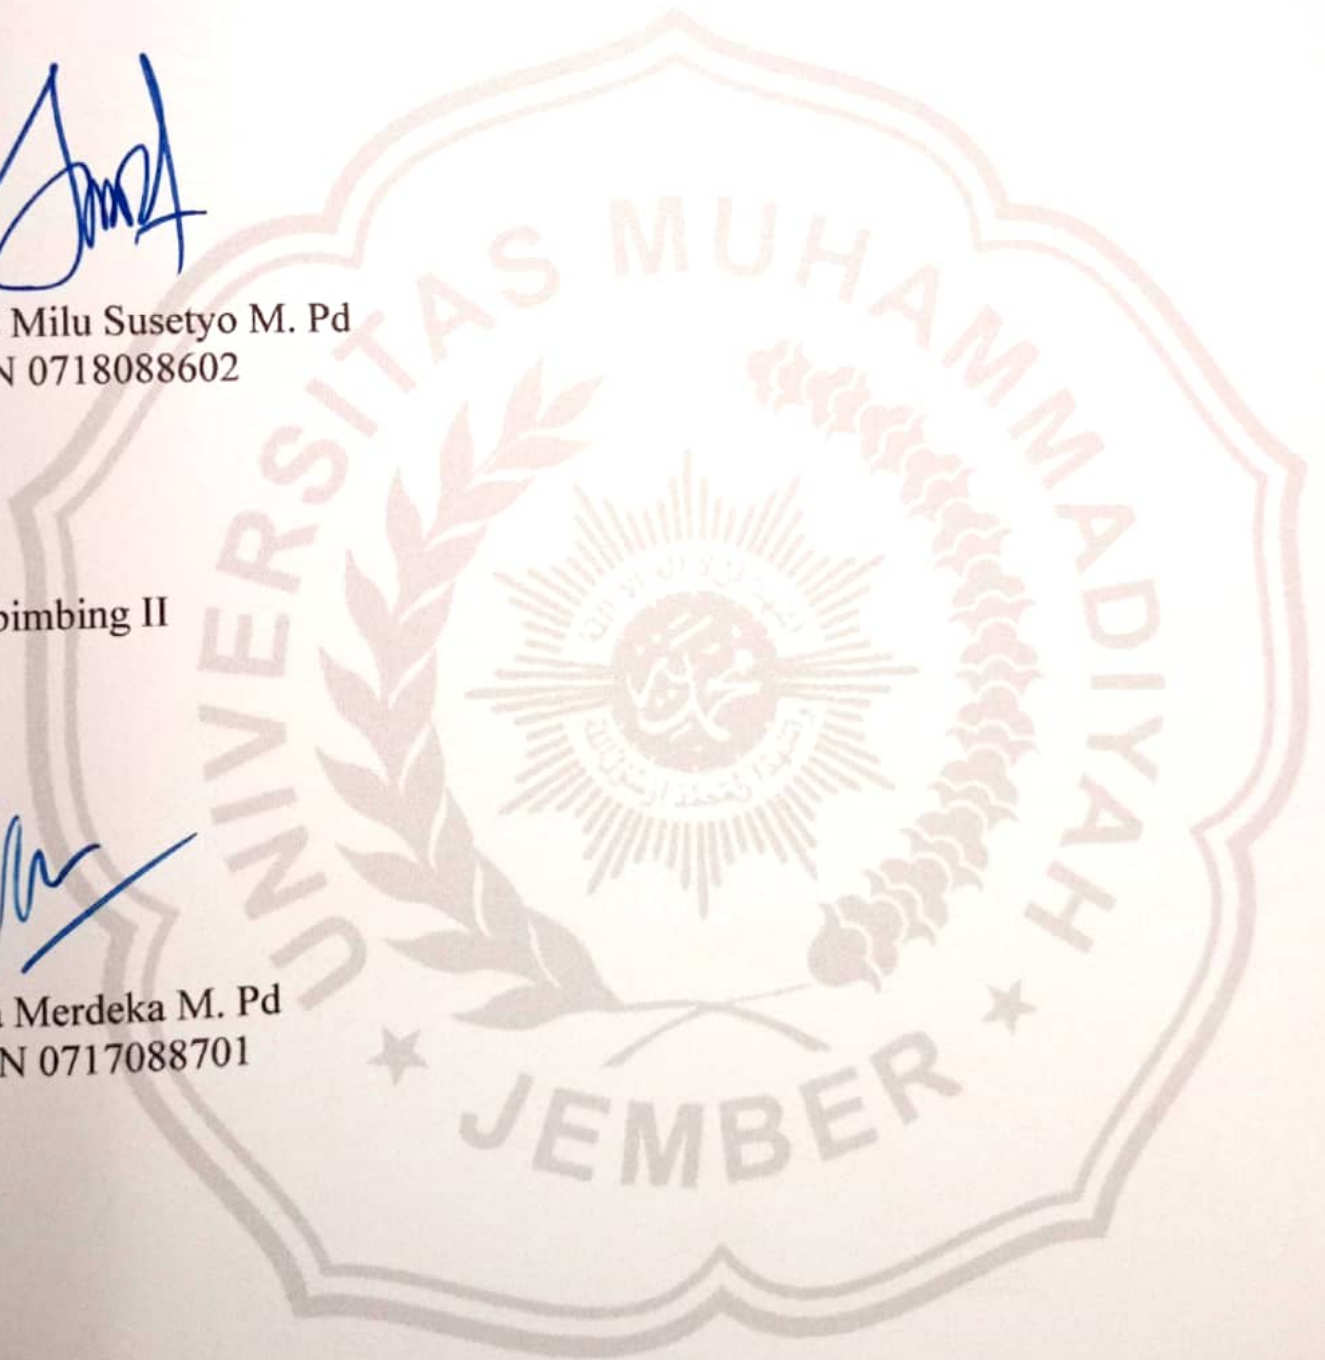 Milu Susetyo M. Pd
N 0718088602
bimbing II
Merdeka M. Pd
N 0717088701
UNIVERSITAS MUHAMMADIYAH
JEMBER